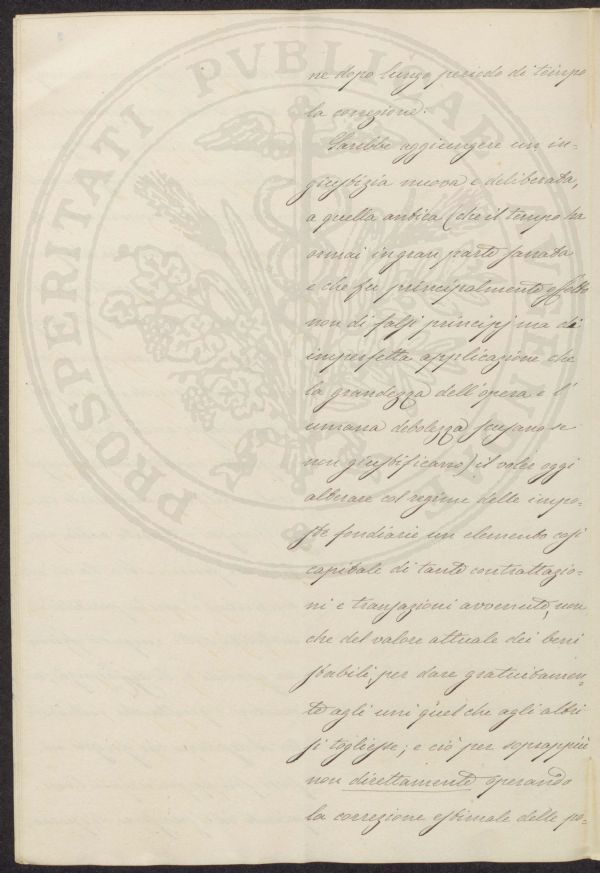 ne dopo lungo periodo di tempo
la correzione.
Sarebbe aggiungere un in-
giustizia nuova e deliberata,
a quella antica (che il tempo ha
ormai in gran parte sanata
e che fu principalmente effetto
non di falsi principj ma di
imperfetta applicazione che
la grandezza dell'opera e l'
umana debolezza scusano se
non giustificano) il voler oggi
alterare col regime delle impo-
ste fondiarie un elemento così
capitale di tante contrattazio-
ni e transazioni avvenute, non
che del valore attuale dei beni
stabili, per dare gratuitamen-
te agli uni quel che agli altri
si togliesse; e ciò per soprappiù
non direttamente operando
la correzione estimale delle po-
PROSPERITATI PVBLICAE